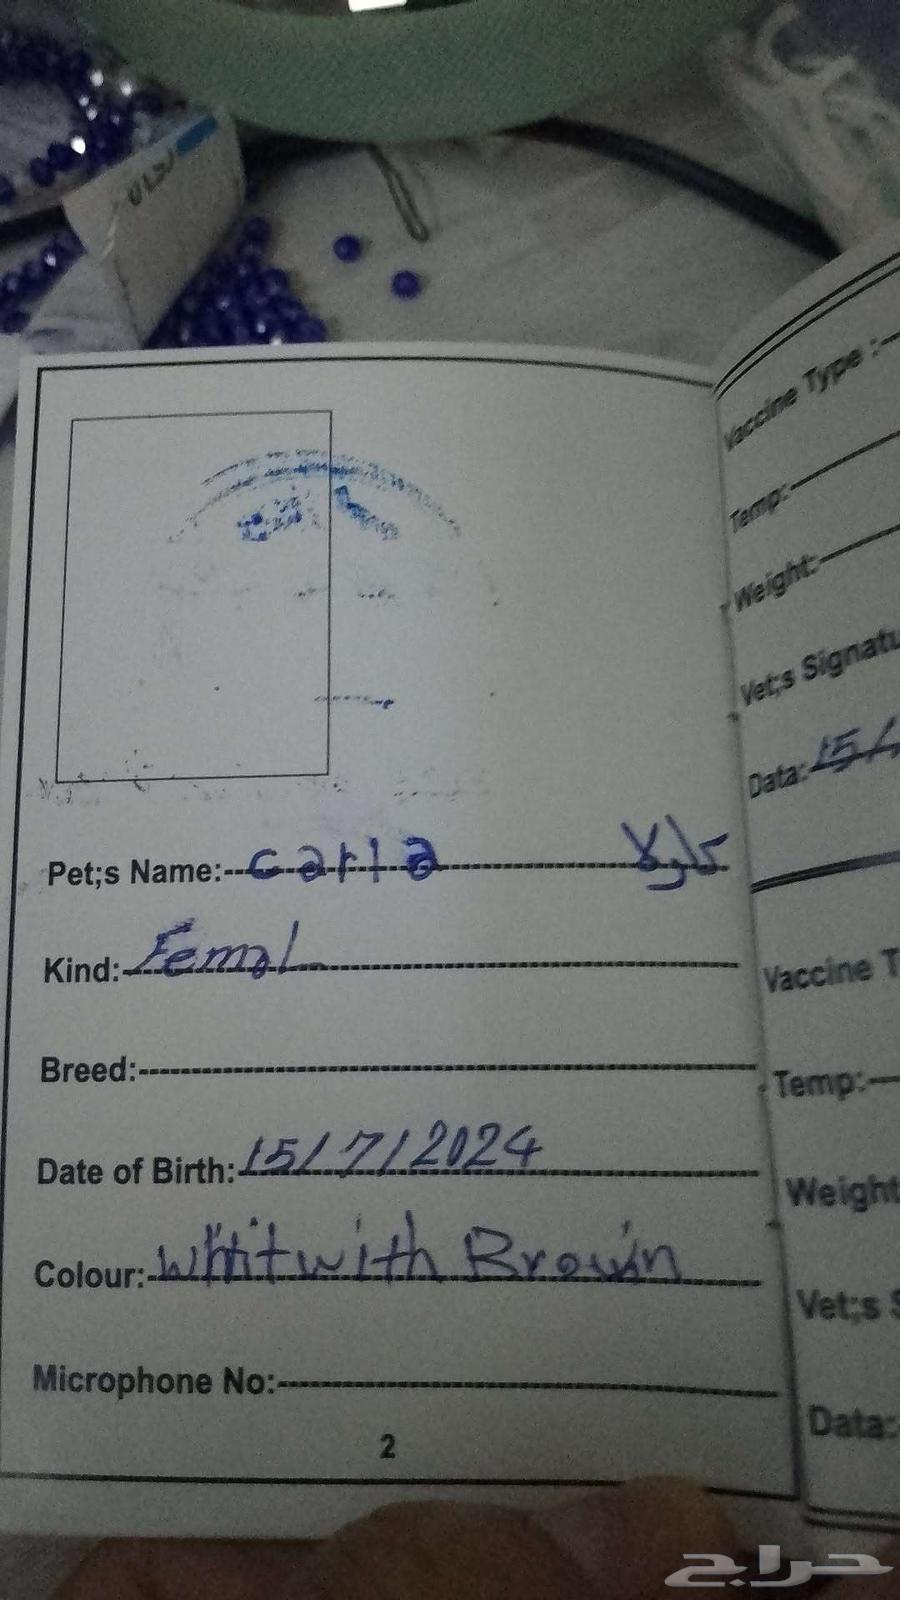 Pet;s Name: carla كارلا
Kind: Femal
Breed:
Date of Birth: 15/7/2024
Colour: Whit with Brown
Microphone No:
2
Vaccine Type :
Temp:
Weight:
Vet;s Signatu
Data: 15/
Vaccine T
Temp:
Weight
Vet;s S
Data:
حراج